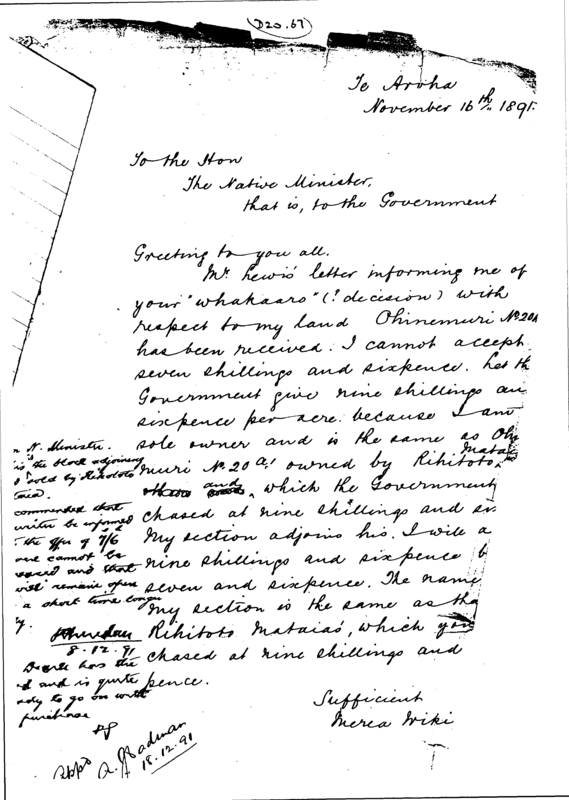 D20.67
Te Aroha
November 16th 1891.
To the Hon
The Native Minister,
that is, to the Government
Greeting to you all.
Mr. Lewis' letter informing me of
your "whakaaro" (? decision) with
respect to my land Ohinemuri No. 20A
has been received. I cannot accept
seven shillings and sixpence. Let th
Government give nine shillings an
sixpence per acre. because I am
sole owner and is the same as Ohi
muri No. 20 owned by Rihitoto Matai
and which the Government
chased at nine shillings and si
My section adjoins his. I will a
nine shillings and sixpence b
seven and sixpence. The name
my section is the same as tha
Rihitoto Mataia's, which you
chased at nine shillings and
pence.
Sufficient
Merea Wiki
N. Minister.
is the block adjoining
sold by Rihitoto
commended that
writer be informed
the offer of 7/6
cannot be
and that
will remain open
a short time longer
8.12.91
has the
and is quite
ady to go on with
purchase
A. J. Cadman
18.12.91